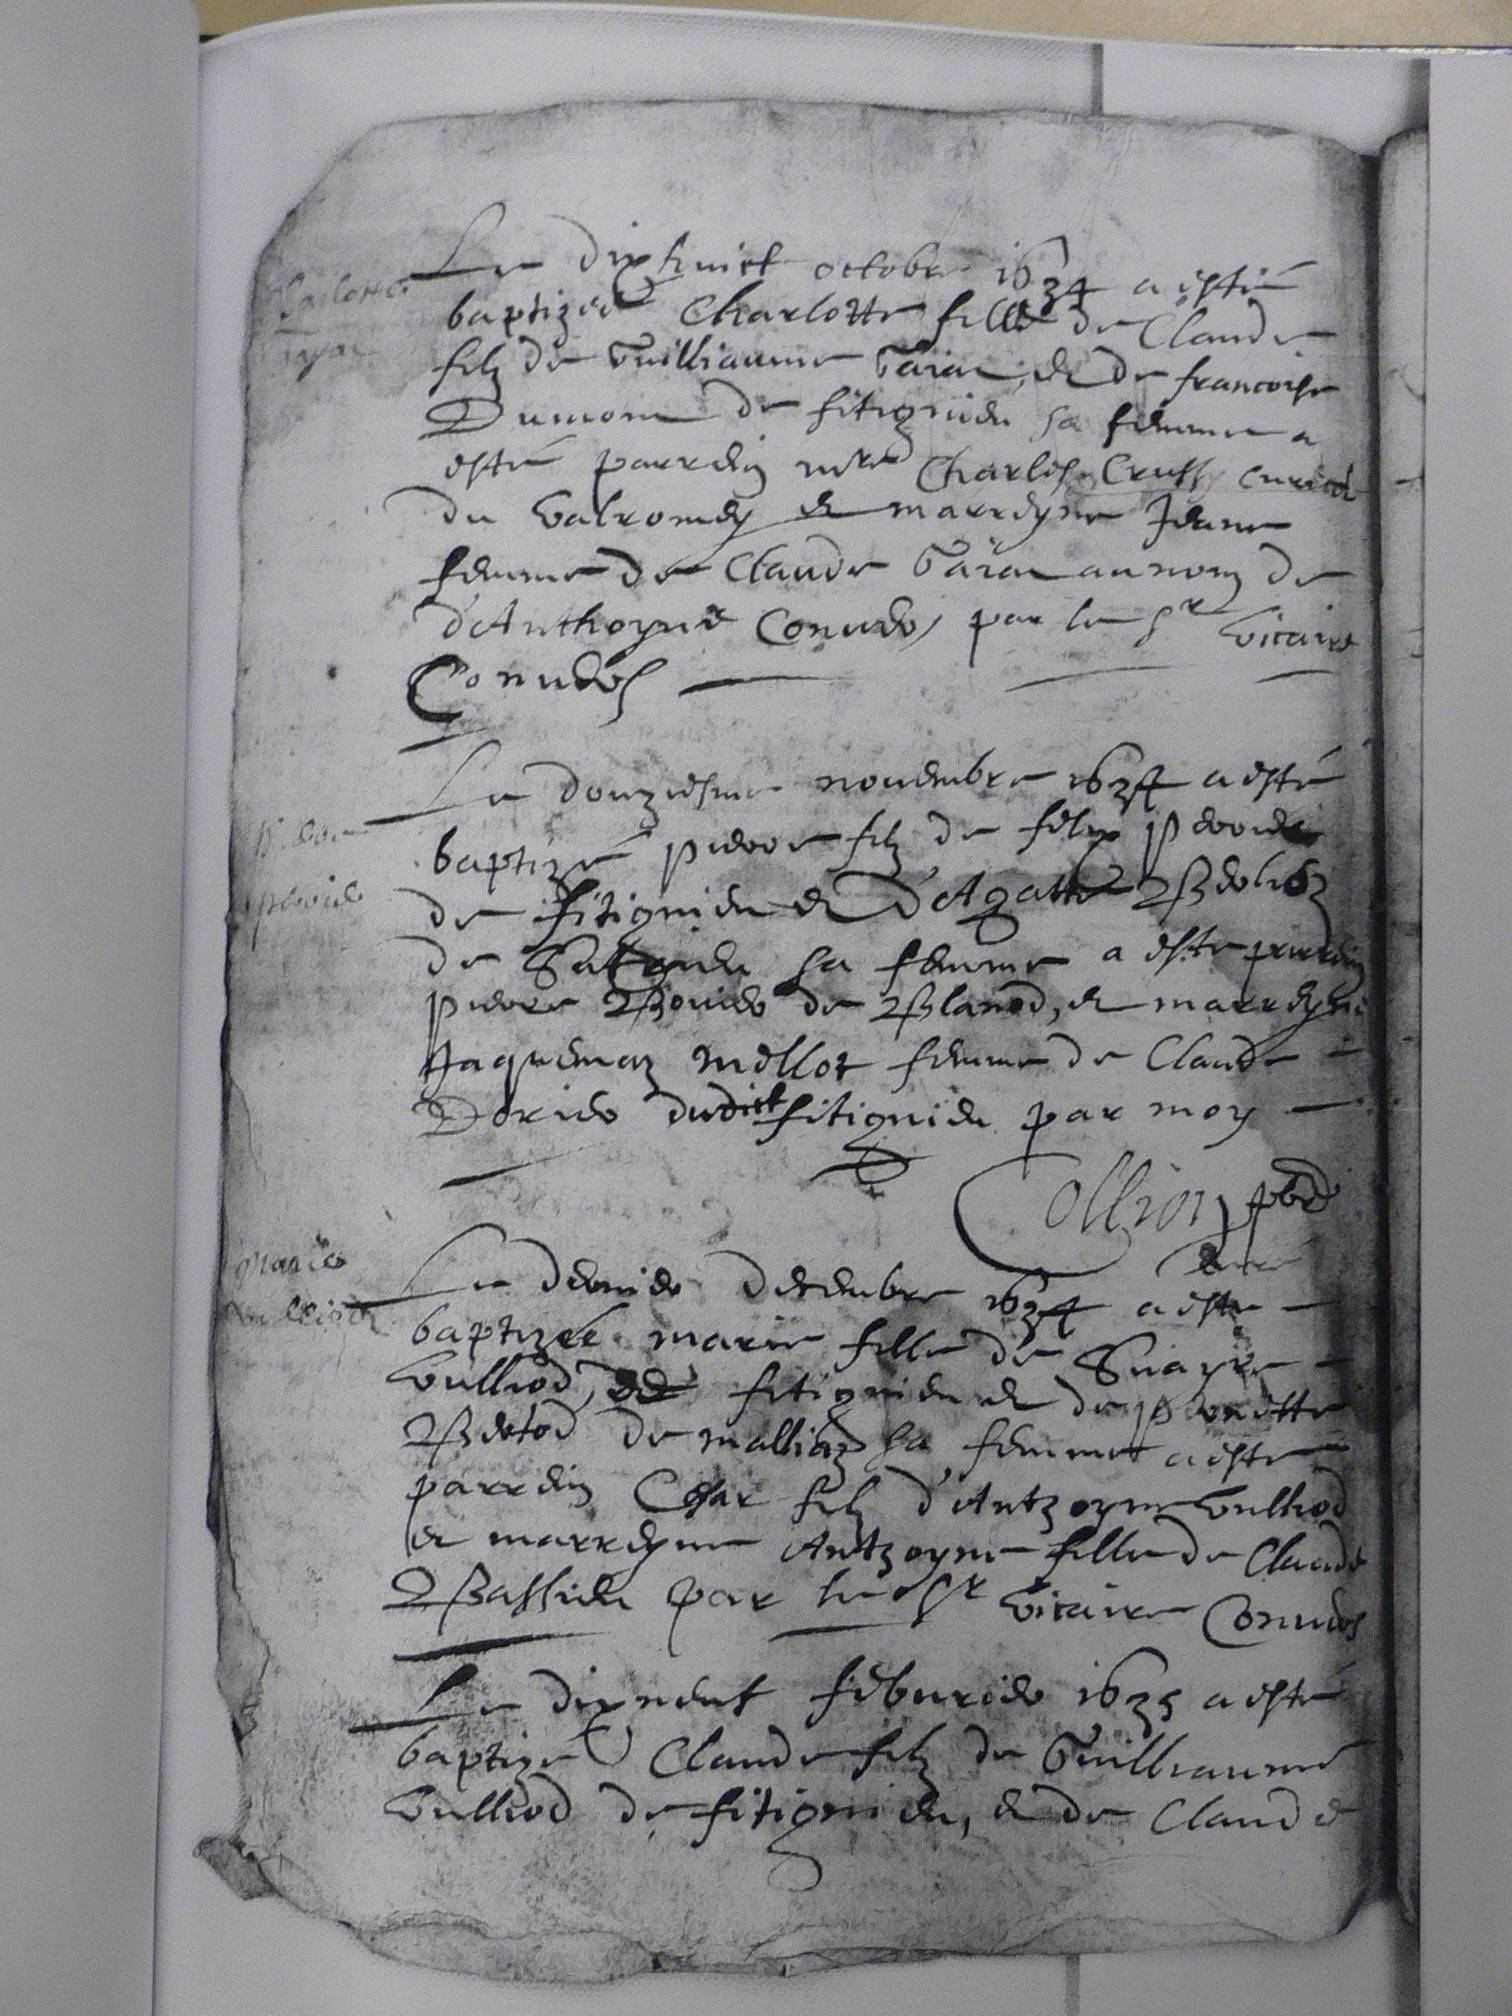 Le dixhuict octobre 1634 a esté
baptizée Charlotte fille de Claude
filz de Guilliaume et de francoise
Dumont de fitignieu sa femme a
esté parrein mre Charles curial
du Valromey et marreyne Jeane
femme de Claude au nom de
d'Anthoyne Conuers par le sr Vicaire
Conuers
Le douziesme nouembre 1634 a esté
baptizé pierre filz de felix
de fitignieu et d'Agatte
de sa femme a esté parrein
pierre de et marreyne
Jaquemaz mellot femme de Claude
Dorier dudict fitignieu par moy
Collion pbre
Marie
Le dernier decembre 1634 a este
baptizée marie fille de
Vulliod de fitignieu et de pernette
Bertod de malliaz sa femme a esté
parrein Cesar filz d'Antzoyne Vulliod
et marreyne Antzoyne fille de Claude
Bassieu par le sr Vicaire Conuers
Le dixneuf feburier 1635 a esté
baptizé Claude filz de Guilliaume
Vulliod de fitignieu, et de Claude